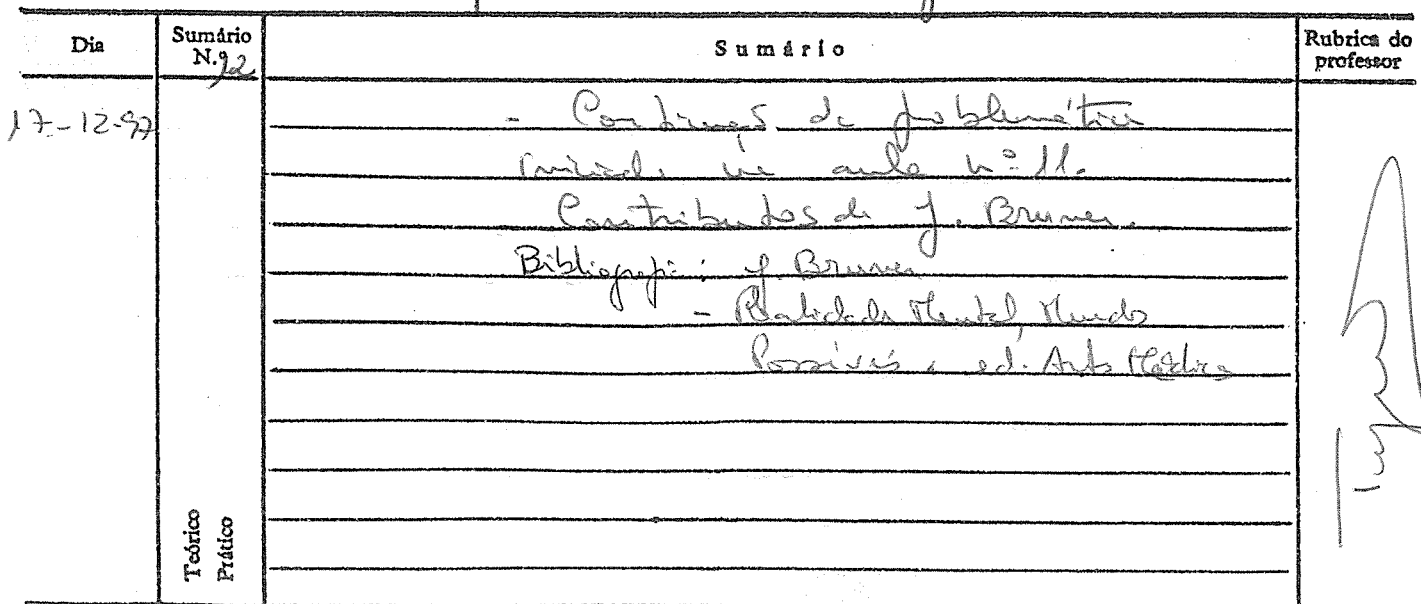 Dia
Sumário
N.º 12
Sumário
Rubrica do
professor
17-12-97
- Continuação da problemática
iniciada na aula nº 11.
Contributos de J. Bruner.
Bibliografia: J. Bruner
- Realidade Mental, Mundos
Possíveis, ed. Artes Médicas
Teórico
Prático